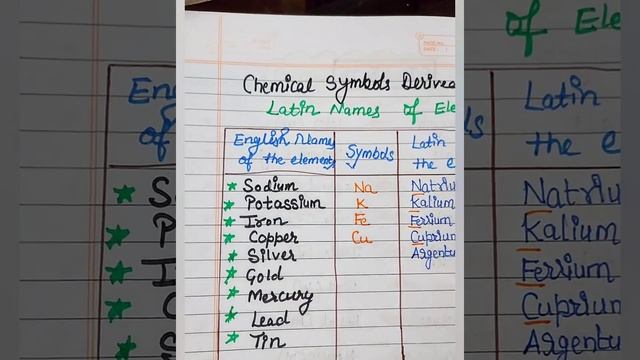 of Ele
Chemical Symbols Derive
Latin Names of Ele
English Name
of the elements
Symbols
Latin
the e
Sodium Na Natriu
Potassium K Kalium
Iron Fe Ferrium
Copper Cu Cuprium
Silver Argentu
Gold
Mercury
Lead
Tin
Eng
of
Latin
the e
Natriu
Kalium
Ferrium
Cuprium
Argentu